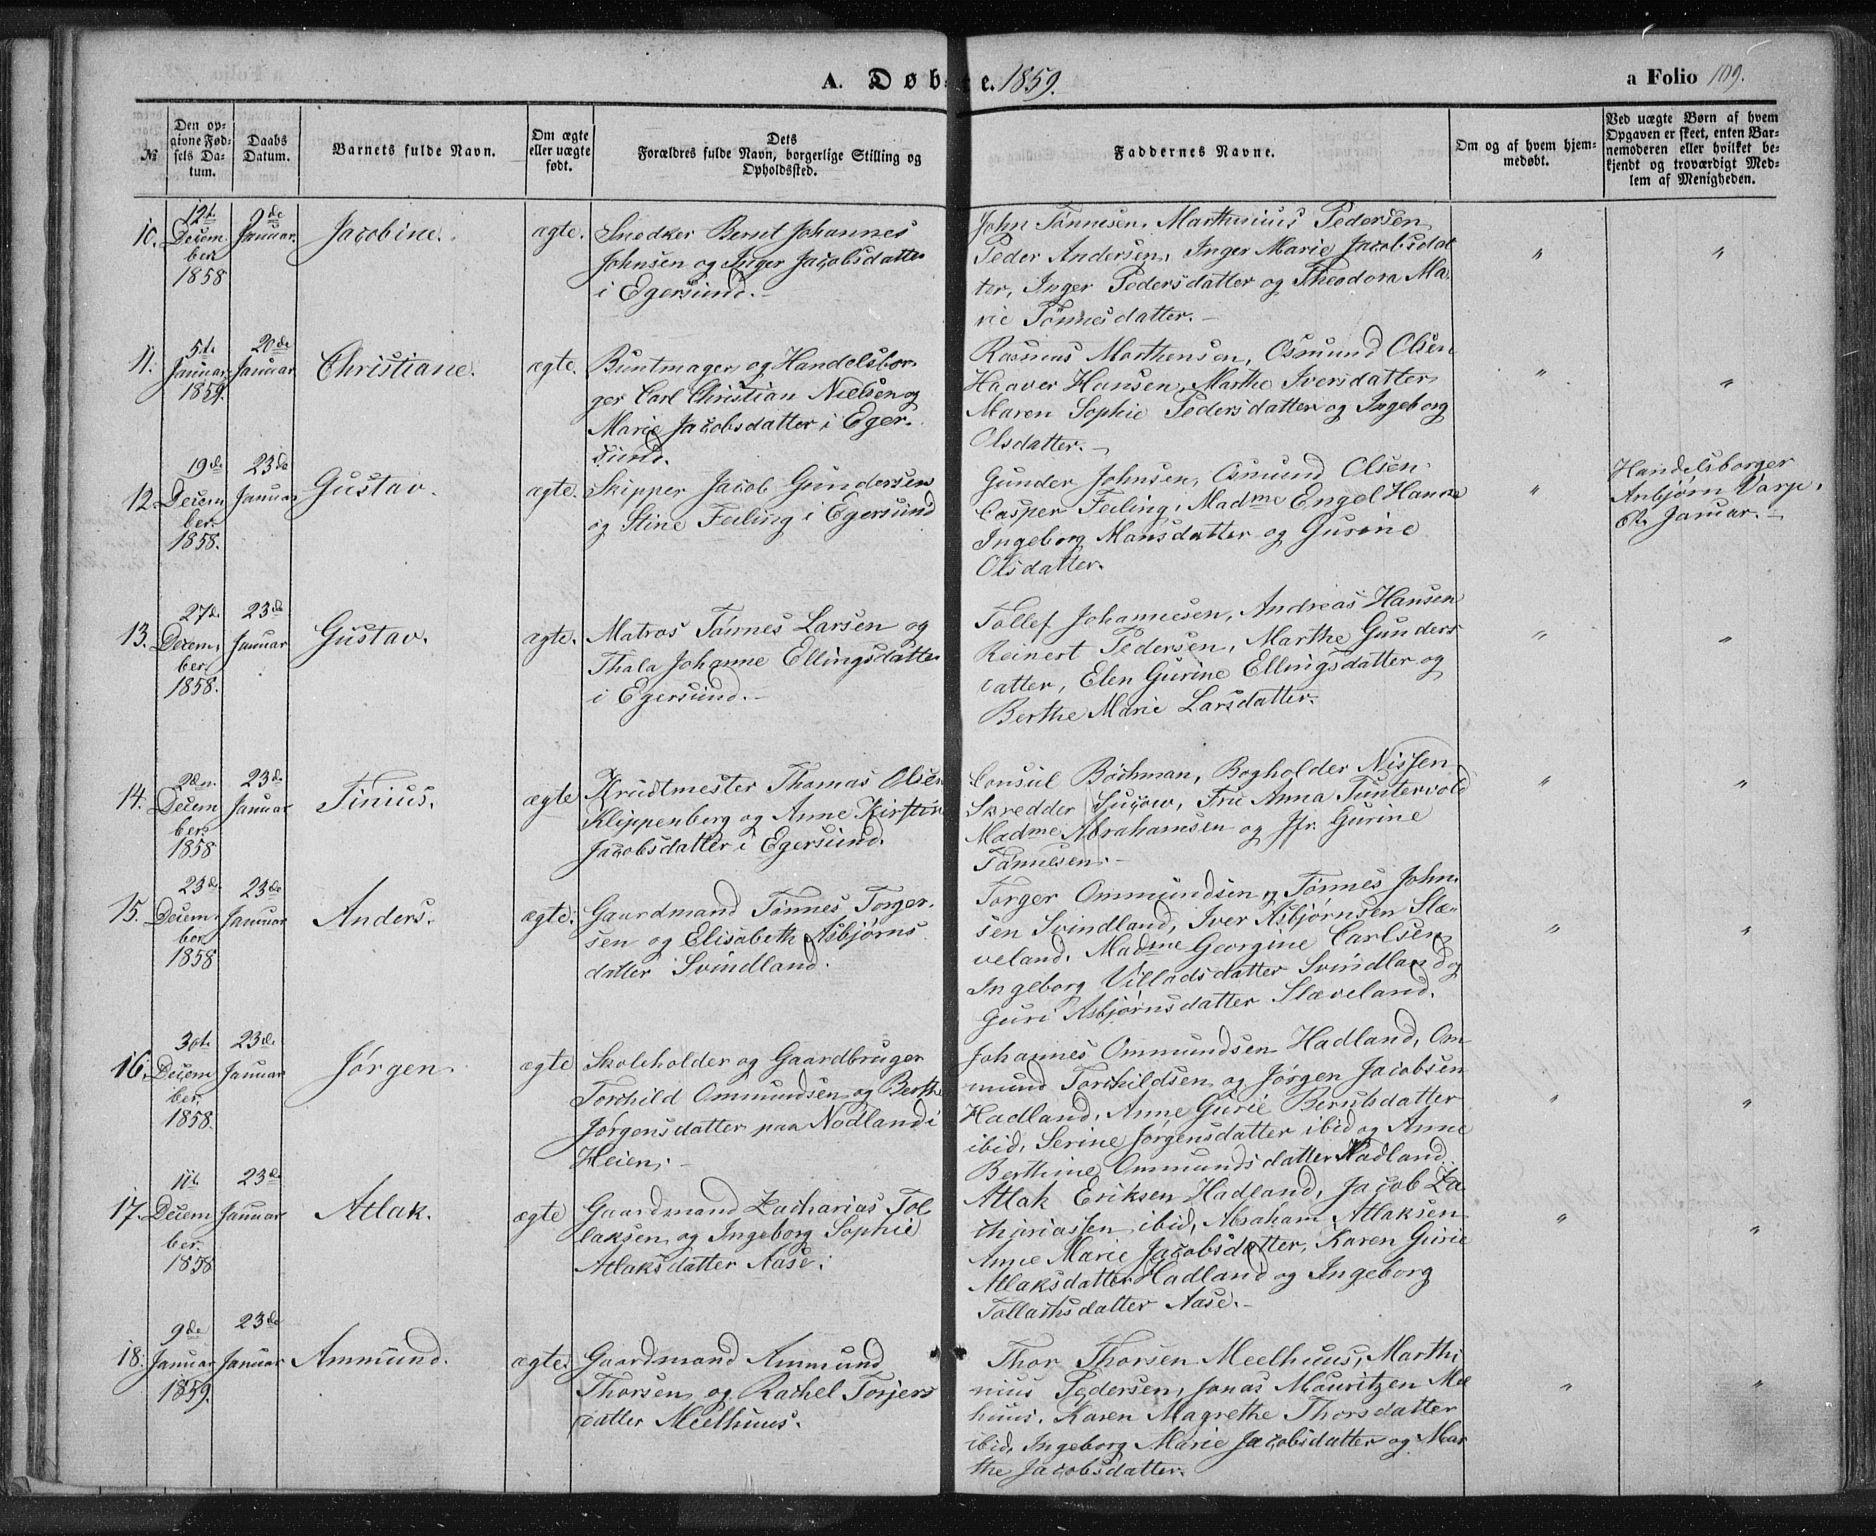 A. Døbte. 1859.
a Folio 109.
№
Den op-
givne Fød-
sels Da-
tum.
Daabs
Datum.
Barnets fulde Navn.
Om ægte
eller uægte
født.
Dets
Forældres fulde Navn, borgerlige Stilling og
Opholdssted.
Faddernes Navne.
Om og af hvem hjem-
medøbt.
Ved uægte Børn af hvem
Opgaven er skeet, enten Bar-
nemoderen eller hvilket be-
kjendt og troværdigt Med-
lem af Menigheden.
10.
12te
Decem
ber
1858
9de
Januar.
Jacobine.
ægte.
Snedker Bernt Johannes
Johnsen og Inger Jacobsdatter
i Egersund.
John Tønnesen, Marthinius Pedersen
Peder Andersen, Inger Marie Jacobsdat
ter, Inger Pedersdatter og Theodora Ma-
rie Tönnesdatter.
"
"
11.
5te
Januar
1859.
20de
Januar
Christiane.
ægte.
Buntmager og Handelsbor-
ger Carl Christian Nielsen og
Marie Jacobsdatter i Eger-
sund.
Rasmus Morthensen, Osmund Olsen
Haaver Hansen, Marthe Iversdatter
Maren Sophie Pedersdatter og Ingeborg
Olsdatter.
"
"
12.
19de
Decem
ber.
1858.
23de
Januar
Gustav.
ægte.
Skipper Jacob Gundersen
og Stine Feiling i Egersund
Gunder Johnsen, Osmund Olsen.
Casper Feiling, Madme Engel Hansen
Ingeborg Mansdatter og Gurine
Olsdatter.
"
Handelsborger
Anbjørn Varp,
6te Januar.
13.
27de
Decem-
ber
1858.
23de
Januar
Gustav.
ægte.
Matros Tönnes Larsen og
Thala Johanne Ellingsdatter
i Egersund.
Tollef Johannesen, Andreas Hansen
Reinert Pedersen, Marthe Gunders
datter, Elen Gurine Ellingsdatter og
Berthe Marie Larsdatter.
"
"
14.
2den
Decem
ber
1858
23de
Januar
Tinius.
ægte
Krudtmester Thomas Olsen
Klippenberg og Anne Kirstine
Jacobsdatter i Egersund.
Consul Böchman, Bogholder Nissen
Skredder Sucow, Fru Anna Tuntervold
Madme Abrahamsen og Jfr. Gurine
Tönnesen.
"
"
15.
23de
Decem-
ber
1858
23de
Januar
Anders.
ægte.
Gaardmand Tönnes Torger-
sen og Elisabeth Asbjørns
datter Svindland.
Torger Ommundsen og Tønnes John-
sen Svindland, Iver Asbjørnsen Slæ-
veland, Madme Georgine Carlsen
Ingeborg Villadsdatter Svindland og
Guri Asbjørnsdatter Slæveland.
"
"
16.
30te
Decem
ber.
1858.
23de
Januar
Jørgen
ægte
Skoleholder og Gaardbruger
Torchild Ommundsen og Berthe
Jørgensdatter paa Nodland i
Heien.
Johannes Ommundsen Hadland, Om
mund Torchildsen og Jørgen Jacobsen
Hadland, Anne Gurie Berntsdatter
ibid, Serine Jørgensdatter ibid og Anne
Berthine Ommundsdatter Nadland
"
"
17.
11te
Decem
ber.
1858
23de
Januar
Atlak.
ægte
Gaardmand Zacharias Tol
laksen og Ingeborg Sophie
Atlaksdatter Aase.
Atlak Eriksen Hadland, Jacob Za-
chariassen ibid, Abraham Atlaksen
Anne Marie Jacobsdatter, Karen Gurie
Atlaksdatter Hadland og Ingeborg
Tollachsdatter Aase.
"
"
18.
9de
Januar
1859.
23de
Januar
Ammund.
ægte.
Gaardmand Ammund
Thorsen og Rachel Torjers
datter Meelhuus.
Thor Thorsen Meelhuus, Marthi
nius Pedersen, Jonas Mauritzen Mel
huus, Karen Magrethe Thorsdatter
ibid, Ingeborg Marie Jacobsdatter og Mar
the Jacobsdatter.
"
"